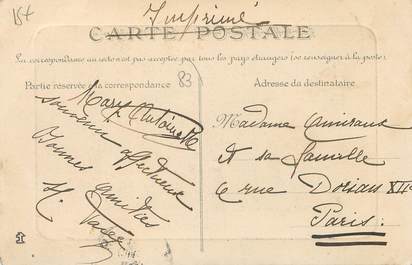 Imprimé
CARTE POSTALE
La correspondance au recto n'est pas acceptée par tous les pays étrangers (se renseigner à la poste)
Partie réservée à la correspondance
83
Adresse du destinataire
Mary Antoinette
souvenir affectueux
Bonnes amitiés
Madame
et sa famille
6 rue Dorian XII
Paris.